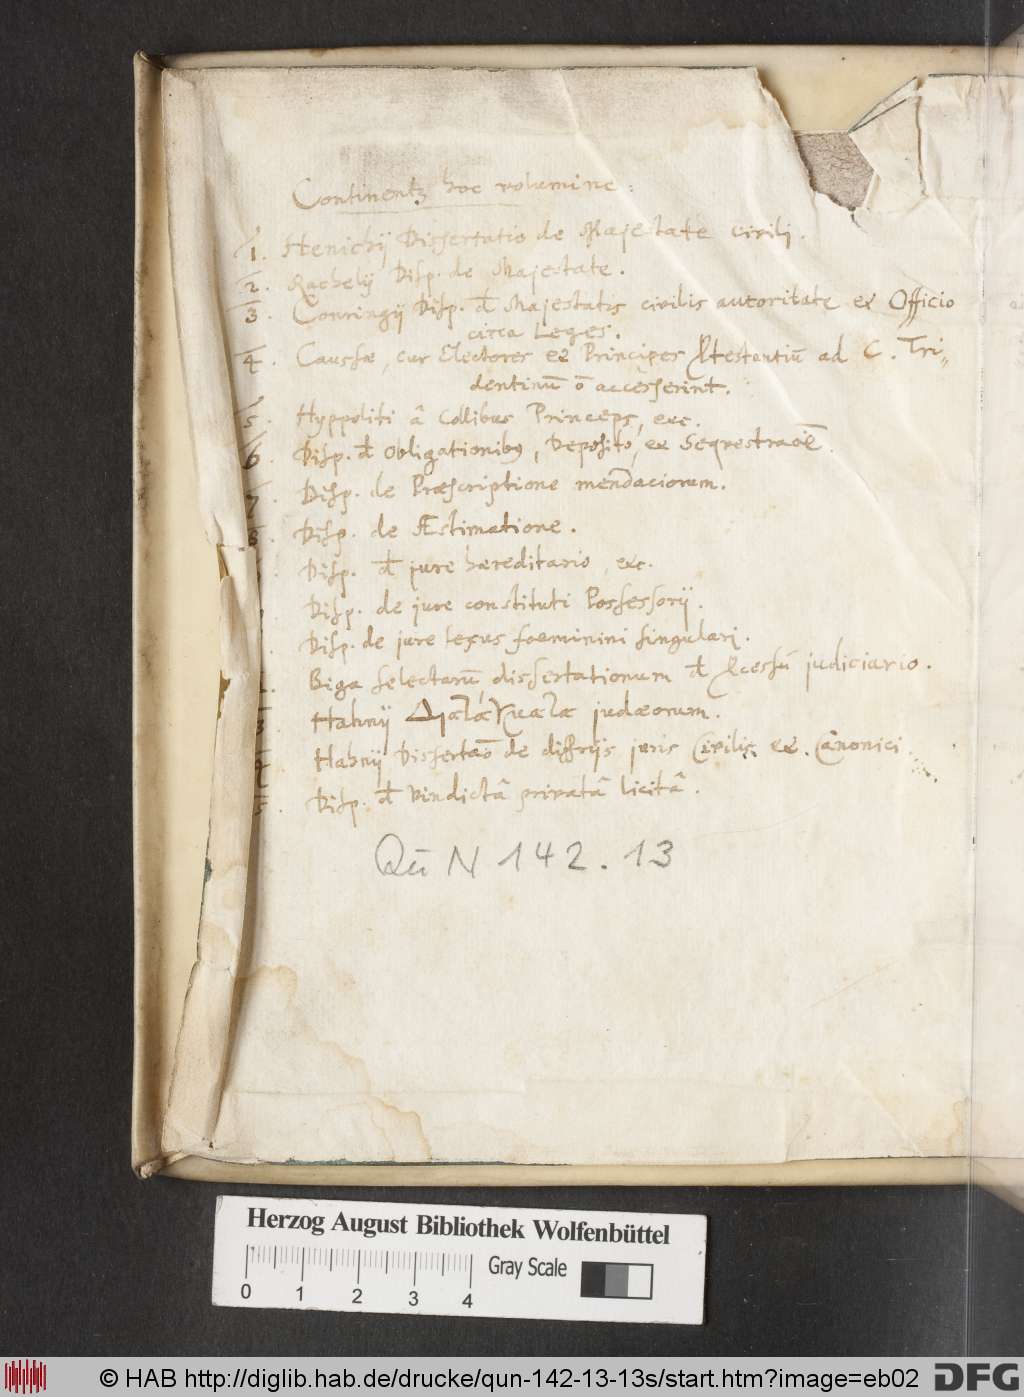 Continentr hoc volumine:
1. Henichij Dissertatio de Majestate civili.
2. Rachelij Disp. de Majestate.
3. Conringij Disp. d̄ Majestatis civilis autoritate et Officio
circa Leges.
4. Caussæ, cur Electores et Principes ꝓtestantiū ad C. Tri-
dentinū ō accesserint.
5. Hyppoliti â Collibus Princeps, etc.
6. Disp. d̄ Obligationibꝰ, Deposito, et Seqvestraōē.
7. Disp. de Præscriptione mendaciorum.
8. Disp. de Æstimatione.
Disp. d̄ jure hæreditario, etc.
Disp. de jure constituti Possessorij.
Disp. de jure sexus foeminini singulari.
Biga selectarū dissertationum d̄ ꝓcessū judiciario.
3 Hahnij judæorum.
4 Hahnij Dissertaō de diff̄rijs juris Civilis et Canonici.
5. Disp. d̄ Vindictâ privatâ licitâ.
Qu N 142.13
Herzog August Bibliothek Wolfenbüttel
Gray Scale
0 1 2 3 4
© HAB http://diglib.hab.de/drucke/qun-142-13-13s/start.htm?image=eb02
DFG